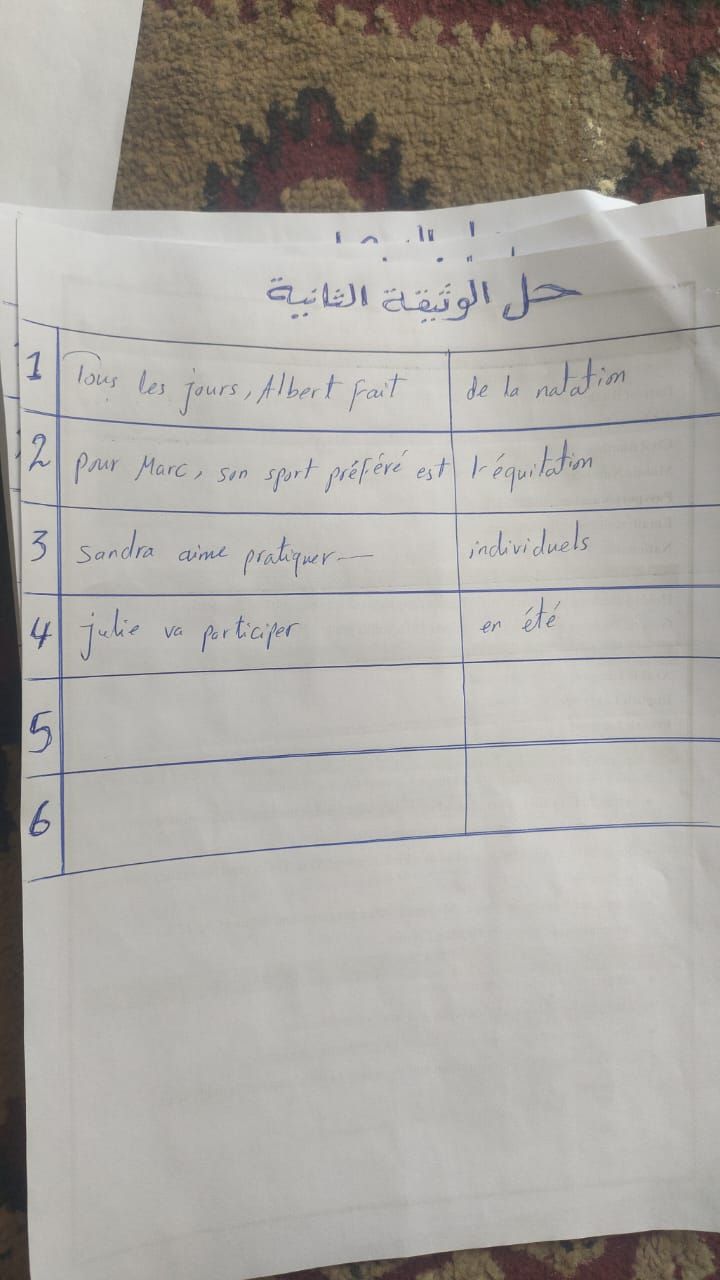 حل الوثيقة الثانية
1 Tous les jours, Albert fait de la natation
2 pour Marc, son sport préféré est l'équitation
3 Sandra aime pratiquer — individuels
4 julie va participer en été
5
6